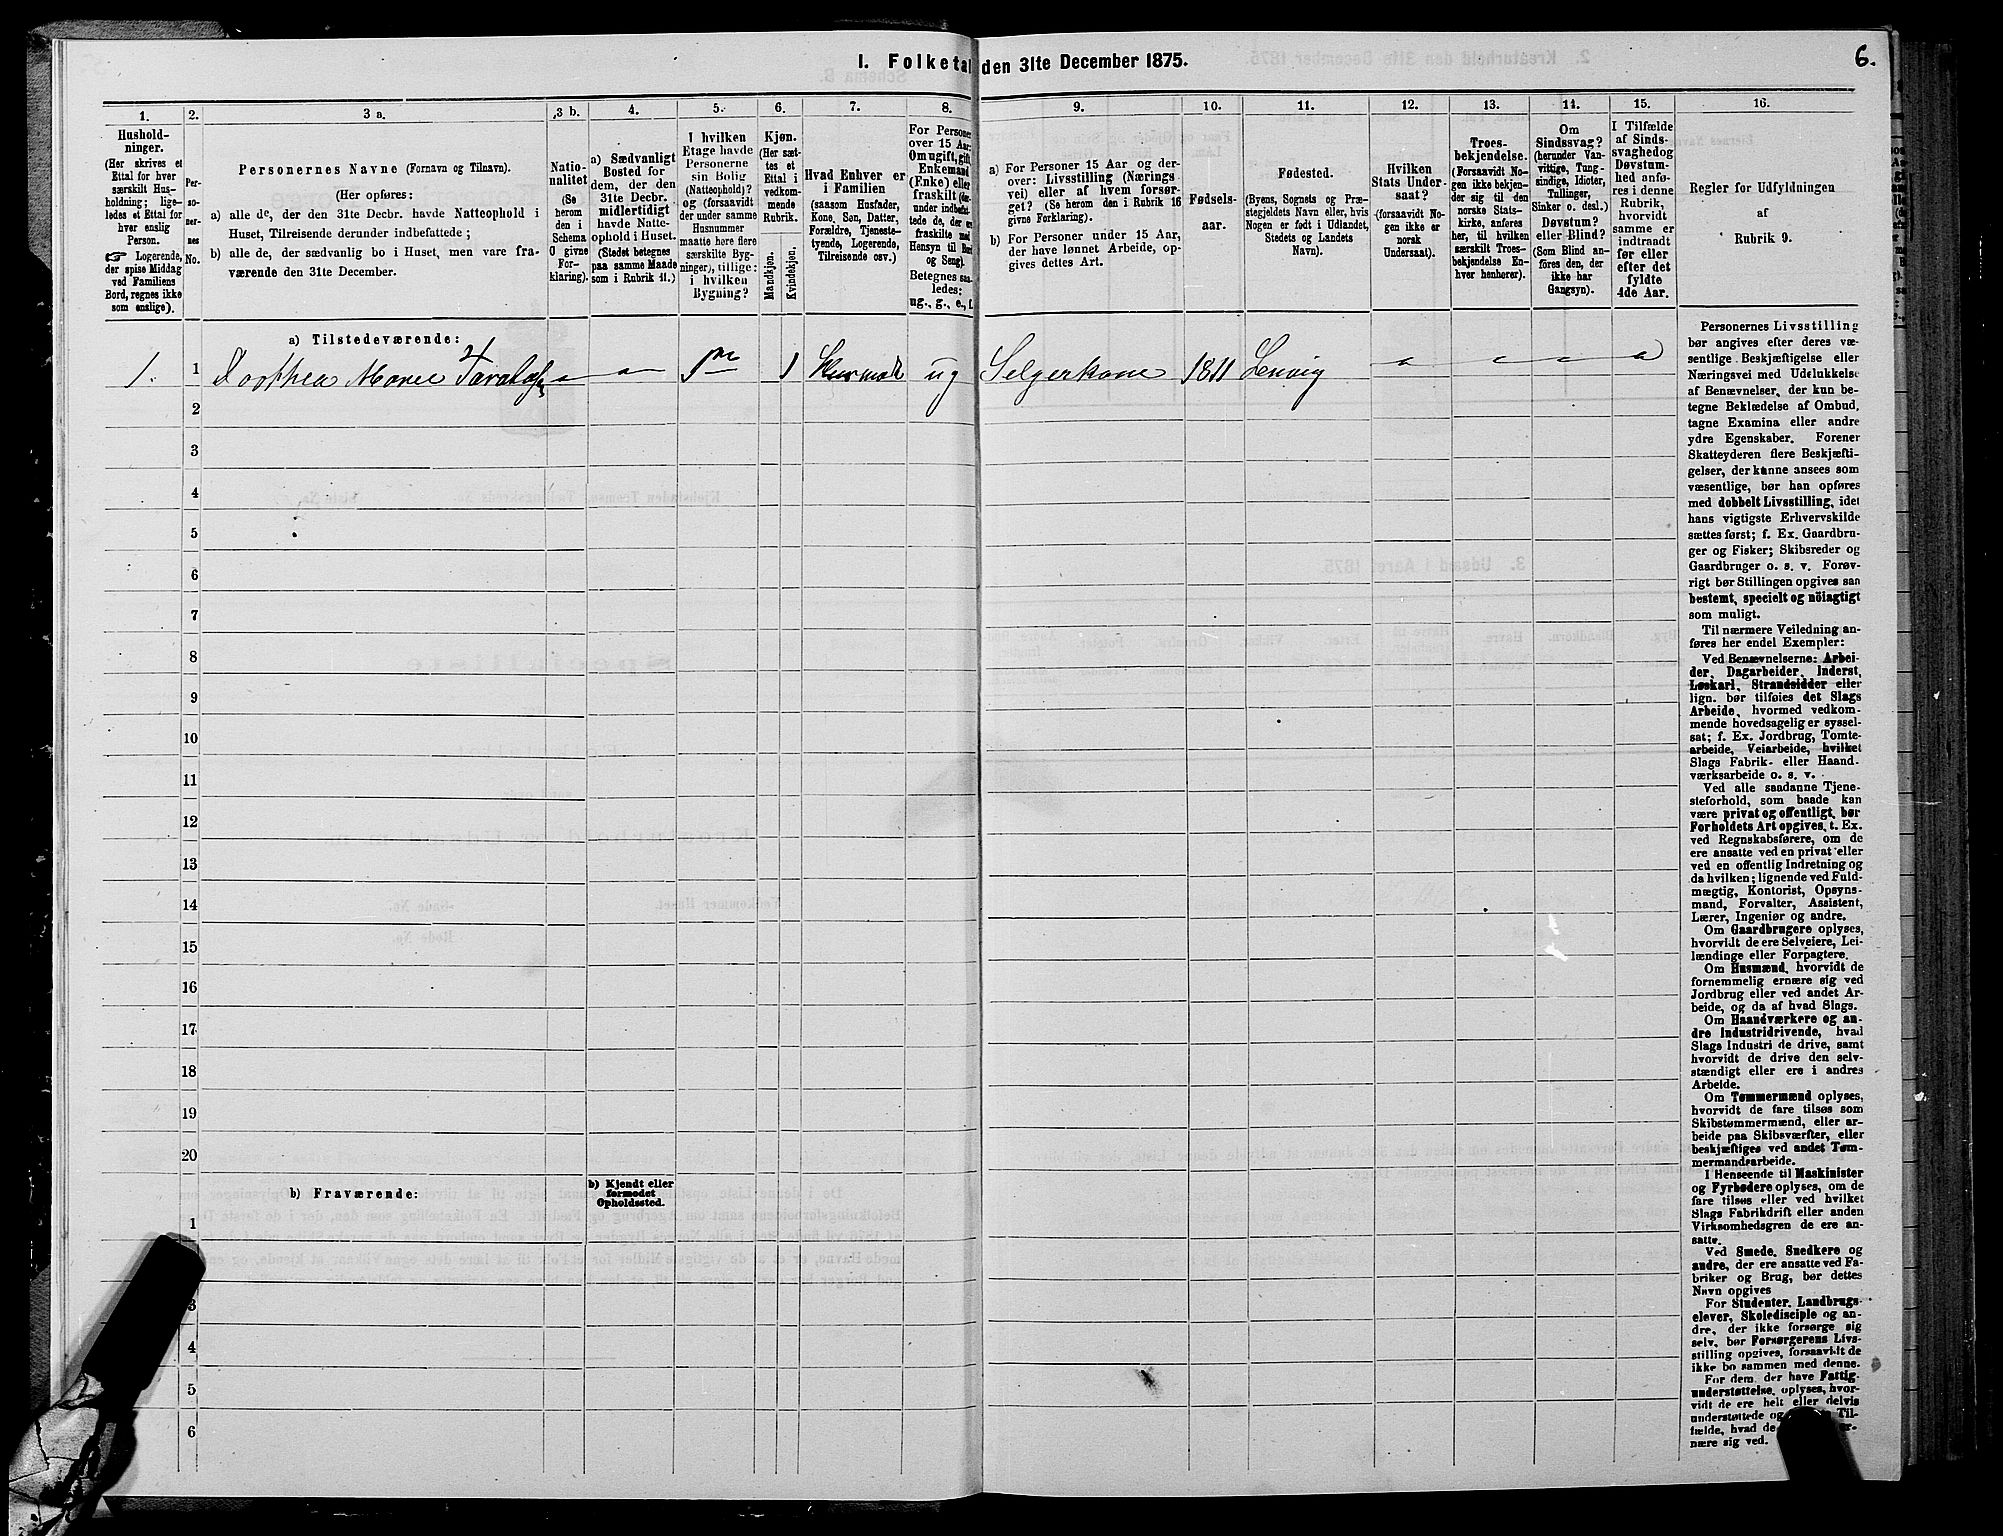 I. Folketal den 31te December 1875.
6.
1.
Hushold-
ninger.
(Her skrives et
Ettal for hver
særskilt Hus-
holdning; lige-
ledes et Ettal for
hver enslig
Person.
Logerende,
der spise Middag
ved Familiens
Bord, regnes ikke
som enslige).
2.
Per-
so-
ner-
nes
No.
3 a.
Personernes Navne (Fornavn og Tilnavn).
(Her opføres:
a) alle de, der den 31te Decbr. havde Natteophold i
Huset, Tilreisende derunder indbefattede;
b) alle de, der sædvanlig bo i Huset, men vare fra-
værende den 31te December.
3 b.
Natio-
nalitet
(Se
herom
den i
Schema
O givne
For-
klaring).
4.
a) Sædvanligt
Bosted for
dem, der den
31te Decbr.
midlertidigt
havde Natte-
ophold i Huset.
(Stedet betegnes
paa samme Maade
som i Rubrik 11.)
5.
I hvilken
Etage havde
Personerne
sin Bolig
(Natteophold)?
og (forsaavidt
der under samme
Husnummer
maatte høre flere
særskilte Byg-
ninger), tillige:
i hvilken
Bygning?
6.
Kjøn.
(Her sæt-
tes et
Ettal i
vedkom-
mende
Rubrik.
Mandkjøn.
Kvindekjøn.
7.
Hvad Enhver er
i Familien
(saasom Husfader,
Kone, Søn, Datter,
Forældre, Tjeneste-
tyende, Logerende,
Tilreisende osv.)
8.
For Personer
over 15 Aar:
Om ugift, gift,
Enkemand
(Enke) eller
fraskilt
og Seng).
Betegnes saa-
ledes:
ug., g., e., f.
9.
a) For Personer 15 Aar og der-
over: Livsstilling (Nærings
vei) eller af hvem forsør-
get? (Se herom den i Rubrik 16
givne Forklaring).
b) For Personer under 15 Aar,
der have lønnet Arbeide, op-
gives dettes Art.
10.
Fødsels-
aar.
11.
Fødested.
(Byens, Sognets og Præ-
stegjeldets Navn eller, hvis
Nogen er født i Udlandet,
Stedets og Landets
Navn).
12.
Hvilken
Stats Under-
saat?
(forsaavidt No-
gen ikke er
norsk
Undersaat).
13.
Troes-
bekjendelse.
(Forsaavidt No-
gen ikke bekjen-
der sig til den
norske Stats-
kirke, anføres
her, til hvilken
særskilt Troes-
bekjendelse En-
hver henhører).
14.
Om
Sindssvag?
(herunder Van-
vittige, Tung-
sindige, Idioter,
Tullinger,
Sinker o. desl.)
Døvstum?
eller Blind?
(Som Blind an-
føres den, der
ikke har
Gangsyn).
15.
I Tilfælde
af Sinds-
svaghed og
Døvstum-
hed anfø-
res i denne
Rubrik,
hvorvidt
samme er
indtraadt
før eller
efter det
fyldte
4de Aar.
16.
Regler for Udfyldningen
af
Rubrik 9.
a) Tilstedeværende:
1. 1 Dorthea Marie 1 ug Selgerkone 1811 Lenvig
2
3
4
5
6
7
8
9
10
11
12
13
14
15
16
17
18
19
20
b) Fraværende:
b) Kjendt eller
formodet
Opholdssted.
1
3
4
5
6
Personernes Livsstilling
bør angives efter deres væ-
sentlige Beskjæftigelse eller
Næringsvei med Udelukkelse
af Benævnelser, der kun be-
tegne Beklædelse af Ombud,
tagne Examina eller andre
ydre Egenskaber. Forener
Skatteyderen flere Beskjæfti-
gelser, der kunne ansees som
væsentlige, bør han opføres
med dobbelt Livsstilling, idet
hans vigtigste Erhvervskilde
sættes først; f. Ex. Gaardbru-
ger og Fisker; Skibsreder og
Gaardbruger o. s. v. Forøv-
rigt bør Stillingen opgives saa
bestemt, specielt og nöiagtigt
som muligt.
Til nærmere Veiledning an-
føres her endel Exempler:
Ved Benævnelserne: Arbei-
der, Dagarbeider, Inderst,
Løskarl, Strandsidder eller
lign. bør tilføies det Slags
Arbeide, hvormed vedkom-
mende hovedsagelig er syssel-
sat; f. Ex. Jordbrug, Tomte-
arbeide, Veiarbeide, hvilket
Slags Fabrik- eller Haand-
værksarbeide o. s. v.
Ved alle saadanne Tjene-
steforhold, som baade kan
være privat og offentligt, bør
Forholdets Art opgives, t. Ex.
ved Regnskabsførere, om de
ere ansatte ved en privat eller
ved en offentlig Indretning og
da hvilken; lignende ved Fuld-
mægtig, Kontorist, Opsyns-
mand, Forvalter, Assistent,
Lærer, Ingeniør og andre.
Om Gaardbrugere oplyses,
hvorvidt de ere Selveiere, Lei-
lændinge eller Forpagtere.
Om Husmænd, hvorvidt de
fornemmelig ernære sig ved
Jordbrug eller ved andet Ar-
beide, og da af hvad Slags.
Om Haandværkere og an-
dre Industridrivende, hvad
Slags Industri de drive, samt
hvorvidt de drive den selv-
stændigt eller ere i andres
Arbeide.
Om Tømmermænd oplyses,
hvorvidt de fare tilsøs som
Skibstømmermænd, eller ar-
beide paa Skibsværfter, eller
beskjæftiges ved andet Tøm-
mermandsarbeide.
I Henseende til Maskinister
og Fyrbødere oplyses, om de
fare tilsøs eller ved hvilket
Slags Fabrikdrift eller anden
Virksomhedsgren de ere an-
satte.
Ved Smede, Snedkere og
andre, der ere ansatte ved Fa-
briker og Brug, bør dettes
Navn opgives
For Studenter, Landbrugs-
elever, Skoledisciple og an-
dre, der ikke forsørge sig
selv, bør Forsørgerens Livs-
stilling opgives, forsaavidt de
ikke bo sammen med denne.
For dem, der have Fattig-
understøttelse, oplyses, hvor-
vidt de ere helt eller delvis
understøttede og
fælde, hvad de
nære sig ved.